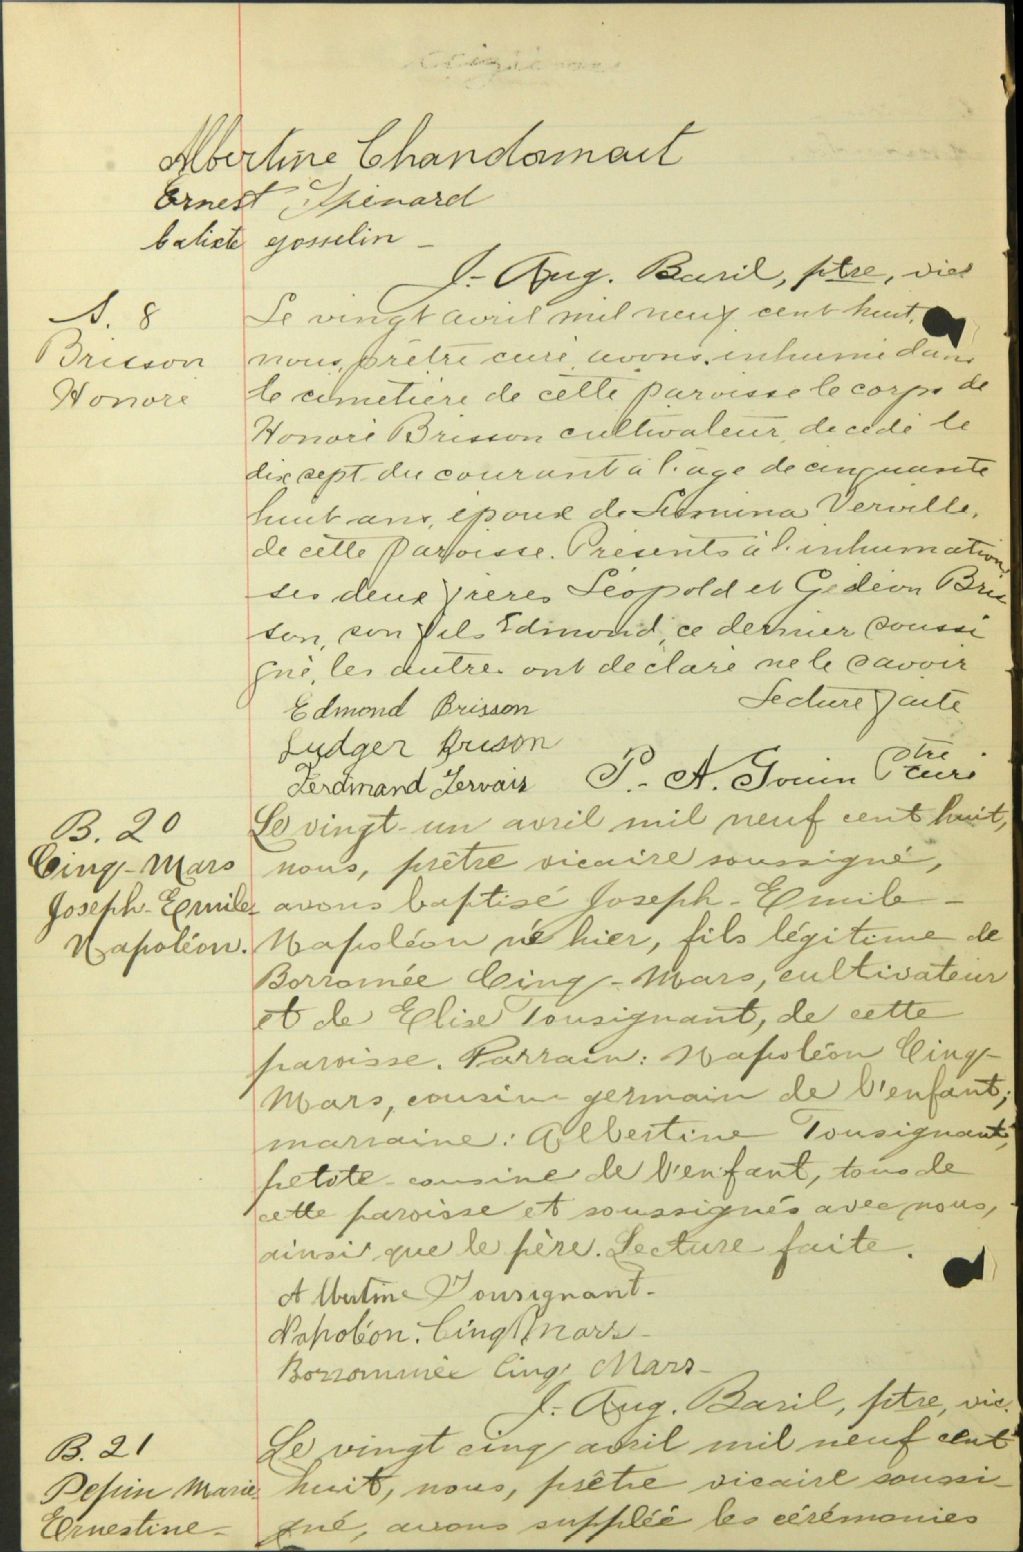 Albertine Chandonnait
Ernest Spénard
Calixte gosselin -
J.- Aug. Baril, ptre, vic.
S. 8
Brisson
Honoré
Le vingt avril mil neuf cent huit,
nous, prêtre curé, avons inhumé dans
le cimetière de cette paroisse le corps de
Honoré Brisson cultivateur, décédé le
dix sept du courant à l'âge de cinquante
huit ans, époux de Verville,
de cette paroisse. Présents à l'inhumation,
ses deux frères Léopold et Gédéon Bris
son, son fils Edmond, ce dernier soussi
gné, les autres ont déclaré ne le savoir
Lecture faite
Edmond Brisson
Ludger Brison
Ferdinand Gervais P. A. Gouin Ptre curé
B. 20
Cinq-Mars
Joseph-Emile-
Napoléon.
Le vingt-un avril mil neuf cent huit,
nous, prêtre vicaire soussigné,
avons baptisé Joseph-Emile-
Napoléon né hier, fils légitime de
Borromée Cinq-Mars, cultivateur
et de Elise Tousignant, de cette
paroisse. Parrain: Napoléon Cinq-
Mars, cousin germain de l'enfant;
marraine: Albertine Tousignant,
petite-cousine de l'enfant, tous de
cette paroisse et soussignés avec nous,
ainsi que le père. Lecture faite.
Albertine Tousignant-
Napoléon. Cinq Mars-
Borrommée Cinq Mars-
J.- Aug. Baril, ptre, vic.
B. 21
Pepin Marie
Ernestine-
Le vingt cinq avril mil neuf cent
huit, nous, prêtre vicaire soussi-
gné, avons suppléé les cérémonies